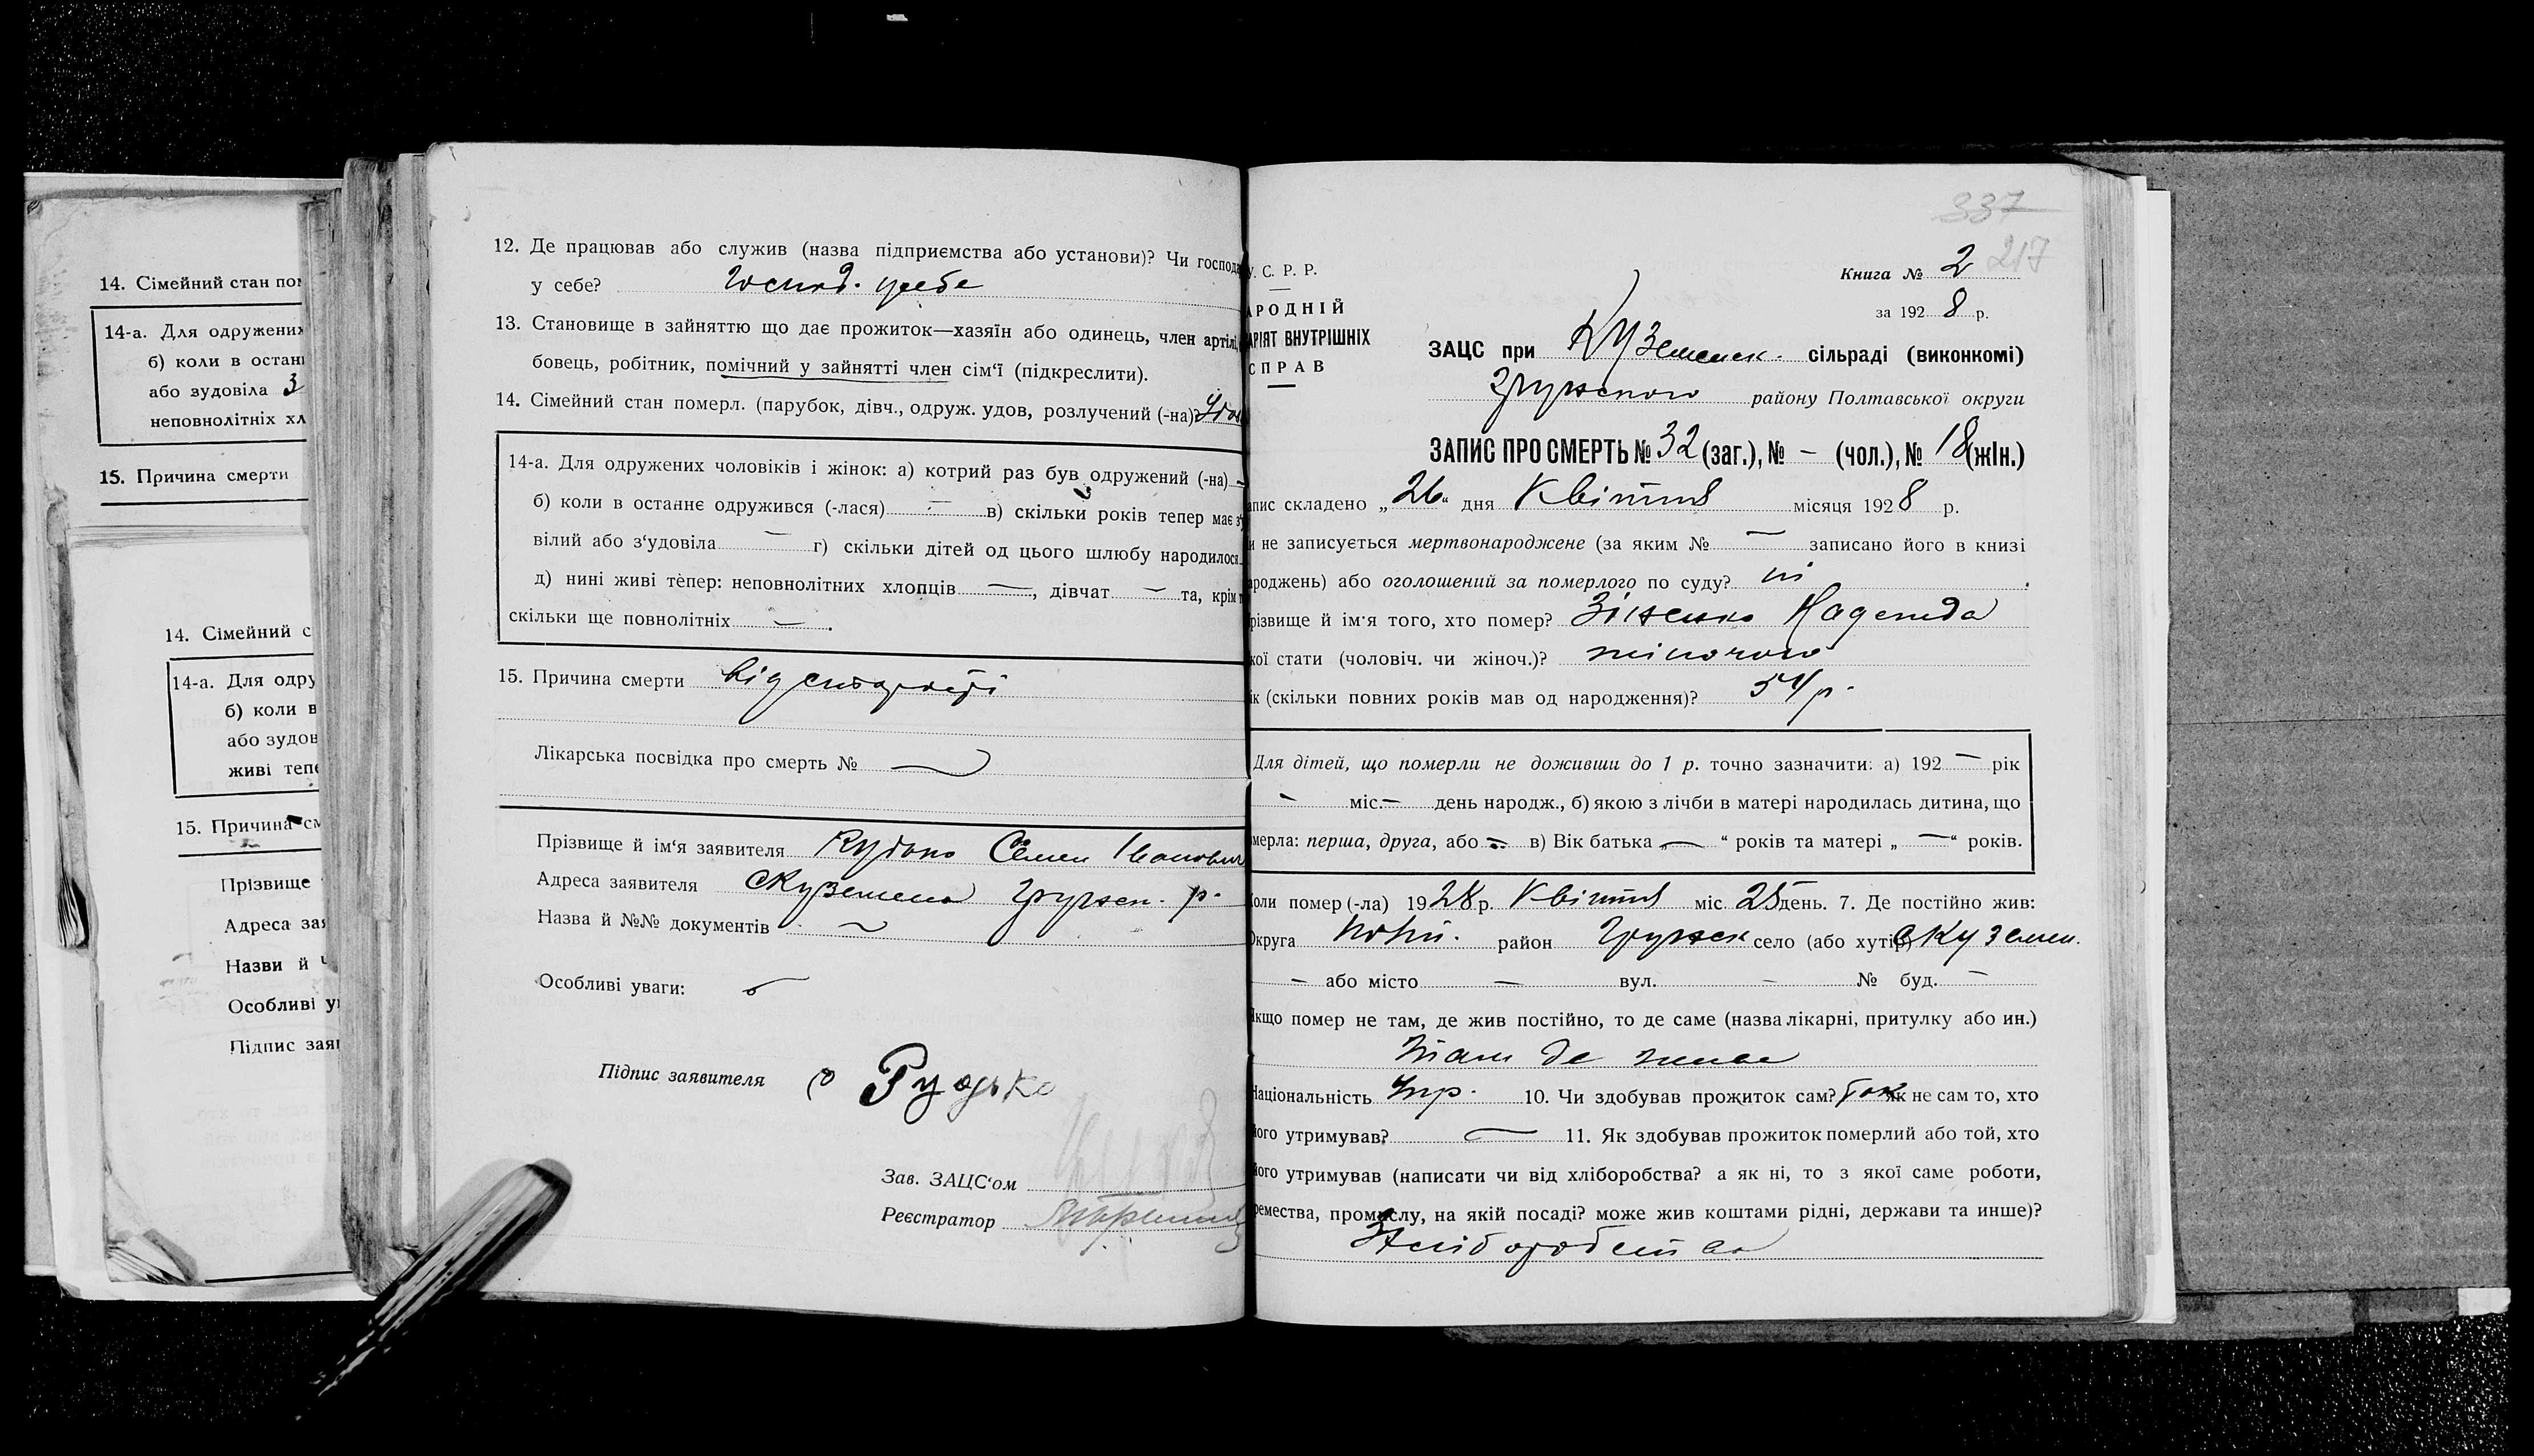 14. Сімейний стан
14-а. Для одружених
б) коли в останн
або зудовіла 3
неповнолітніх хл
15. Причина смерти
14. Сімейний с
14-а. Для одру
б) коли в
або зудов
живі тепе
15. Причина см
Прізвище
Адреса зая
Назви й
Особливі у
Підпис зая
12. Де працював або служив (назва підприємства або установи)? Чи господа
у себе? Господ. у себе
13. Становище в зайняттю що дає прожиток—хазяїн або одинець, член артілі,
бовець, робітник, помічний у зайнятті член сім‘ї (підкреслити).
14. Сімейний стан померл. (парубок, дівч., одруж. удов, розлучений (-на)?
14-а. Для одружених чоловіків і жінок: а) котрий раз був одружений (-на) —
б) коли в останнє одружився (-лася) — в) скільки років тепер має з‘у
вілий або з‘удовіла — г) скільки дітей од цього шлюбу народилося
д) нині живі тепер: неповнолітних хлопців —, дівчат — та, крім т
скільки ще повнолітніх — .
15. Причина смерти від старості
Лікарська посвідка про смерть № —
Прізвище й ім‘я заявителя Семен Іванович
Адреса заявителя с Куземена Грунск. р.
Назва й №№ документів —
Особливі уваги: —
Підпис заявителя Рудько
Зав. ЗАЦС‘ом
Реєстратор
337
217
У. С. Р. Р.
АРОДНІЙ
АРІЯТ ВНУТРІШНІХ
СПРАВ
Книга № 2
за 1928 р.
ЗАЦС при Куземенск. сільраді (виконкомі)
району Полтавської округи
ЗАПИС ПРО СМЕРТЬ № 32 (заг.), № – (чол.), № 18 (жін.)
апис складено „26“ дня Квітня місяця 1928 р.
и не записується мертвонароджене (за яким № — записано його в книзі
ароджень) або оголошений за померлого по суду? ні .
різвище й ім‘я того, хто помер? Зіненко Надежда
кої стати (чоловіч. чи жіноч.)? жіночого
ік (скільки повних років мав од народження)? 54 р.
Для дітей, що померли не доживши до 1 р. точно зазначити: а) 192 — рік
— міс. — день народж., б) якою з лічби в матері народилась дитина, що
мерла: перша, друга, або — в) Вік батька „—“ років та матері „—“ років.
оли помер (-ла) 1928 р. Квітня міс. 25 день. 7. Де постійно жив:
округа Полт. район село (або хутір) с Куземен.
— або місто — вул. — № буд. —
якщо помер не там, де жив постійно, то де саме (назва лікарні, притулку або ин.)
там де живе
Національність Укр. 10. Чи здобував прожиток сам? Так як не сам то, хто
його утримував? — 11. Як здобував прожиток померлий або той, хто
його утримував (написати чи від хліборобства? а як ні, то з якої саме роботи,
ремества, промислу, на якій посаді? може жив коштами рідні, держави та инше)?
Хліборобства